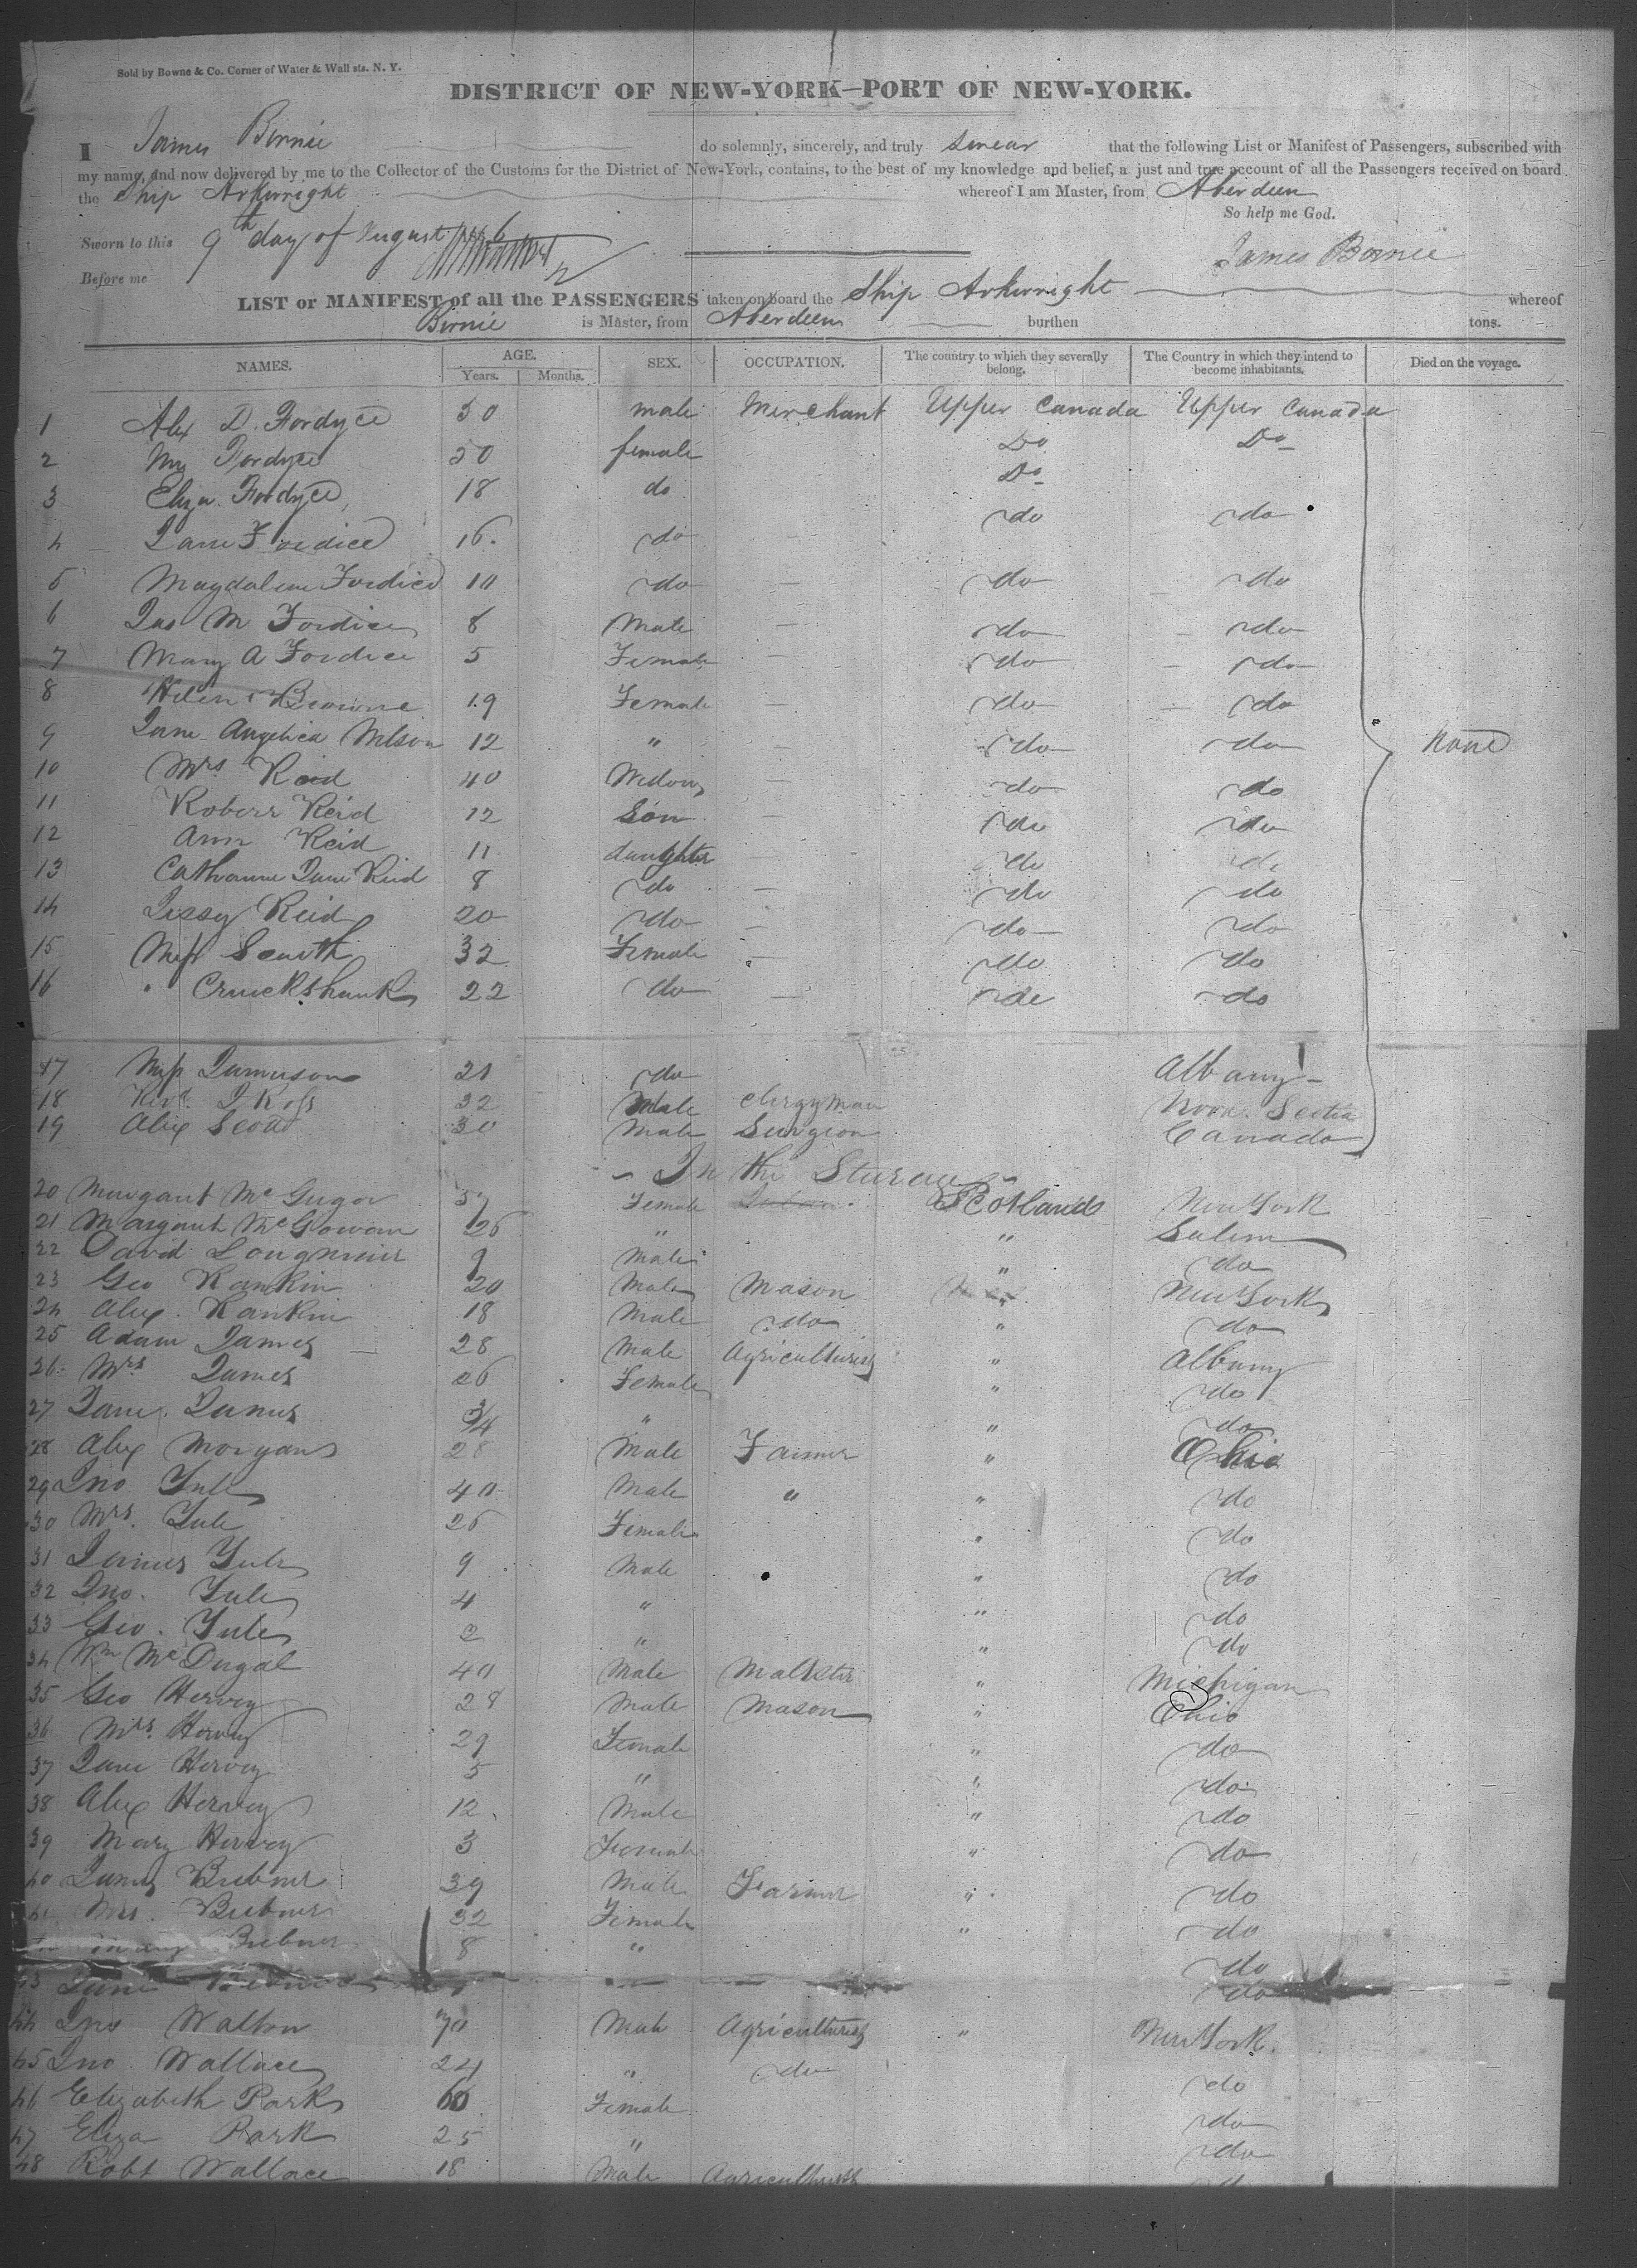 Sold by Bowne & Co. Corner of Water & Wall sts. N. Y.
DISTRICT OF NEW-YORK—PORT OF NEW-YORK.
I James Birnie do solemnly, sincerely, and truly swear that the following List or Manifest of Passengers, subscribed with
my name, and now delivered by me to the Collector of the Customs for the District of New-York, contains, to the best of my knowledge and belief, a just and true account of all the Passengers received on board
the Ship Arkwright whereof I am Master, from Aberdeen
So help me God.
Sworn to this 9th day of August
James Birnie
Before me
LIST or MANIFEST of all the PASSENGERS taken on board the Ship Arkwright whereof
Birnie is Master, from Aberdeen burthen tons.
NAMES. AGE. SEX. OCCUPATION. The country to which they severally belong. The Country in which they intend to become inhabitants. Died on the voyage.
Years. Months.
1 Alex D. Fordyce 50 male Merchant Upper Canada Upper Canada
2 Mrs Fordyce female Do Do
3 Eliza Fordyce, 18 do Do
4 Jane Fordice 16. do do do
5 Magdalene Fordice 10 do do do
6 Jas M Fordice 8 Male do do
7 Mary A Fordice 5 Female do do
8 Helen Browne 19 Female do do
9 Jane Angelica Wilson 12 " do do None
10 Mrs Reid 40 Widow do do
11 Robert Reid 12 Son do do
12 Ann Reid 11 daughter do do
13 Catharine Jane Reid 8 do do do
14 Jessy Reid 20 do do do
15 Miss Scarth 32 Female do do
16 " Cruickshank 22 do do do
17 Miss Jameson 21 do Albany
18 Revd J Ross 32 Male clergyman Nova Scotia
19 Alex Scott 30 Male Surgeon Canada
In the Steerage
20 Margaret McGregor 37 Female Scotland New York
21 Margaret McGowan 26 " " Salem
22 David Longmuir 9 Male " do
23 Geo Rankin 20 Male Mason " New York
24 Alex. Rankin 18 Male do " do
25 Adam James 28 Male Agriculturist " Albany
26. Mrs James 26 Female " do
27 Jane James 3/4 " " do
28 Alex Morgan 28 Male Farmer " Ohio
29 Jno Yule 40 Male " " do
30 Mrs. Yule 26 Female " do
31 James Yule 9 Male " do
32 Jno. Yule 4 " " do
33 Geo. Yule 2 " " do
34 Wm McDugal 40 Male Maltster " Michigan
35 Geo Hervey 28 Male Mason " Ohio
36 Mrs. Hervey 29 Female " do
37 Jane Hervey 5 " " do
38 Alex Hervey 12 Male " do
39 Mary Hervey 3 Female " do
40 James Brebner 39 Male Farmer " do
41 Mrs. Brebner 32 Female " do
42 Mary Brebner 8 " do
43 Jane Brebner do
44 Jno Walton 70 Male Agriculturist " New York
45 Jno. Wallace 24 " do do
46 Elizabeth Park 60 Female do
47 Eliza Park 25 " do
48 Robt Wallace 18 Male Agriculturist